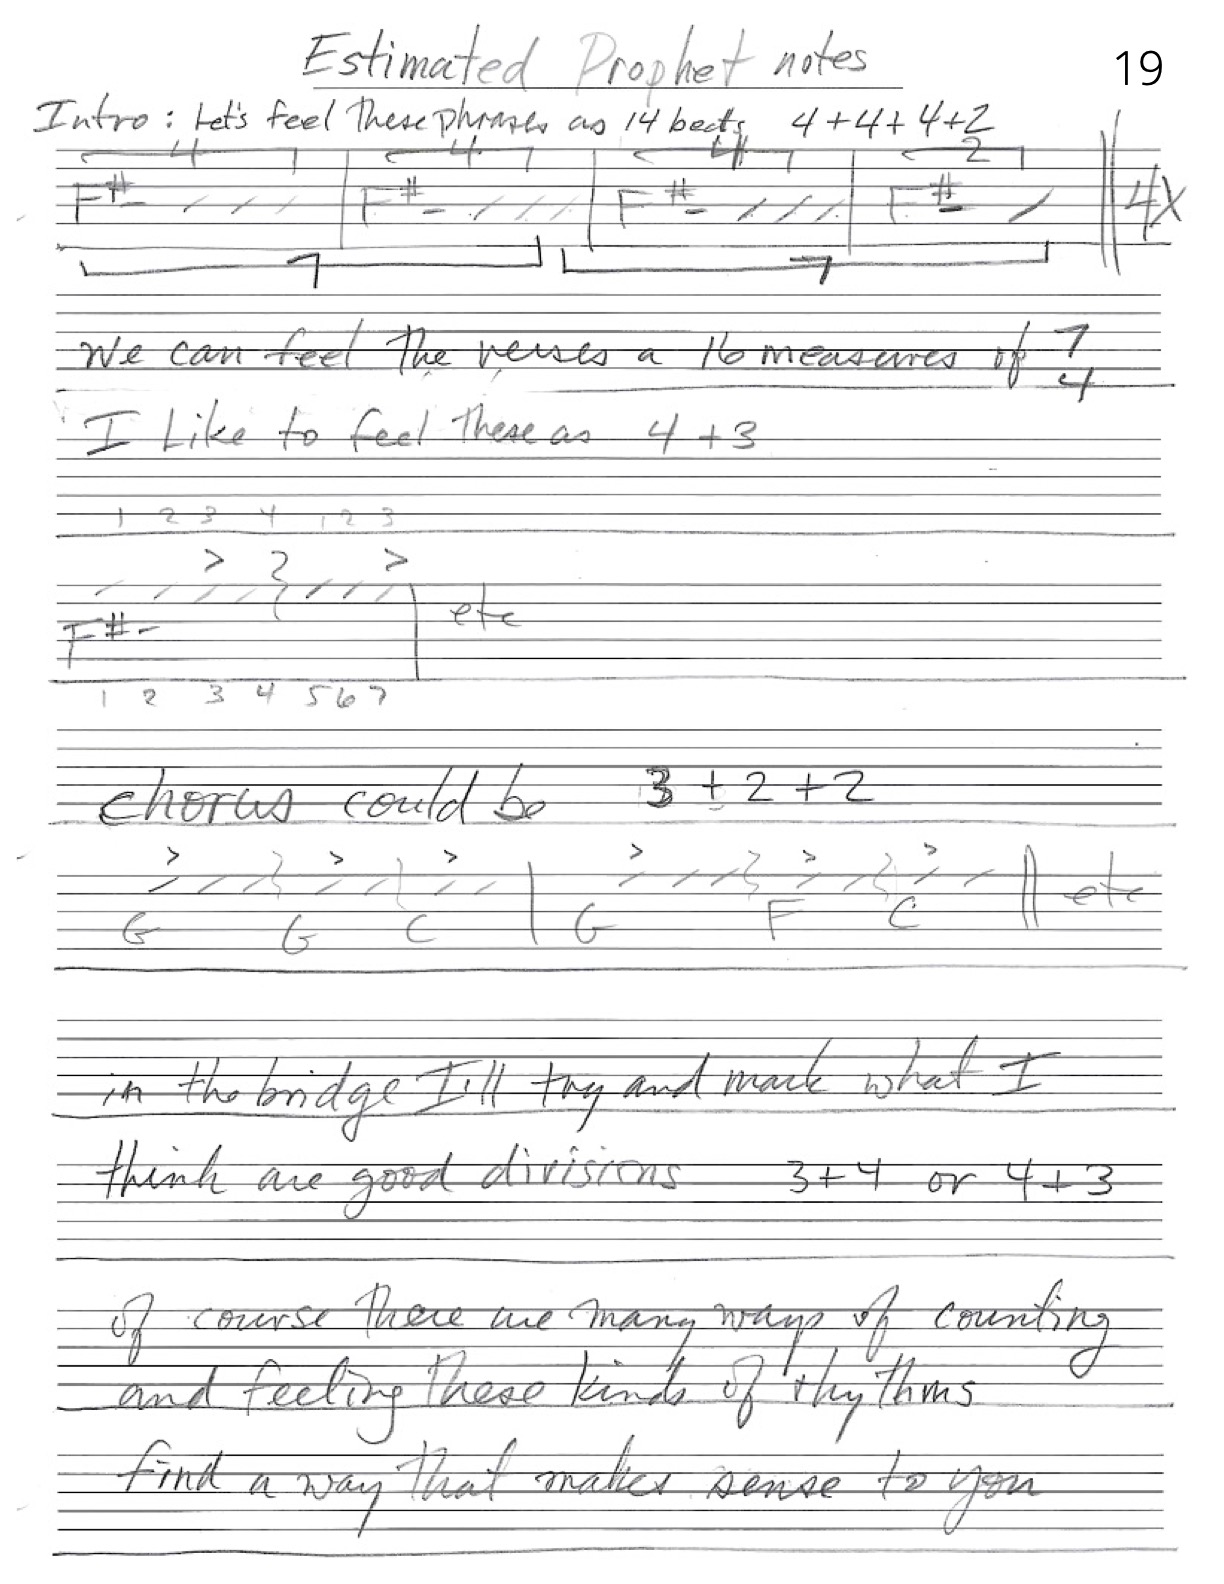 Estimated Prophet notes
19
Intro: Let's feel these phrases as 14 beats 4+4+4+2
4 4 4 2
F#- / / / F#- / / / / F#- / / / / F#- / 4X
7 7
We can feel the verses a 16 measures of 7/4
I Like to feel these as 4+3
1 2 3 4 1 2 3
> >
/ / / / / / / etc
F#-
1 2 3 4 5 6 7
chorus could be 3+2+2
> > > > > >
G G C G F C etc
in the bridge I'll try and mark what I
think are good divisions 3+4 or 4+3
of course there are many ways of counting
and feeling these kinds of rhythms
find a way that makes sense to you